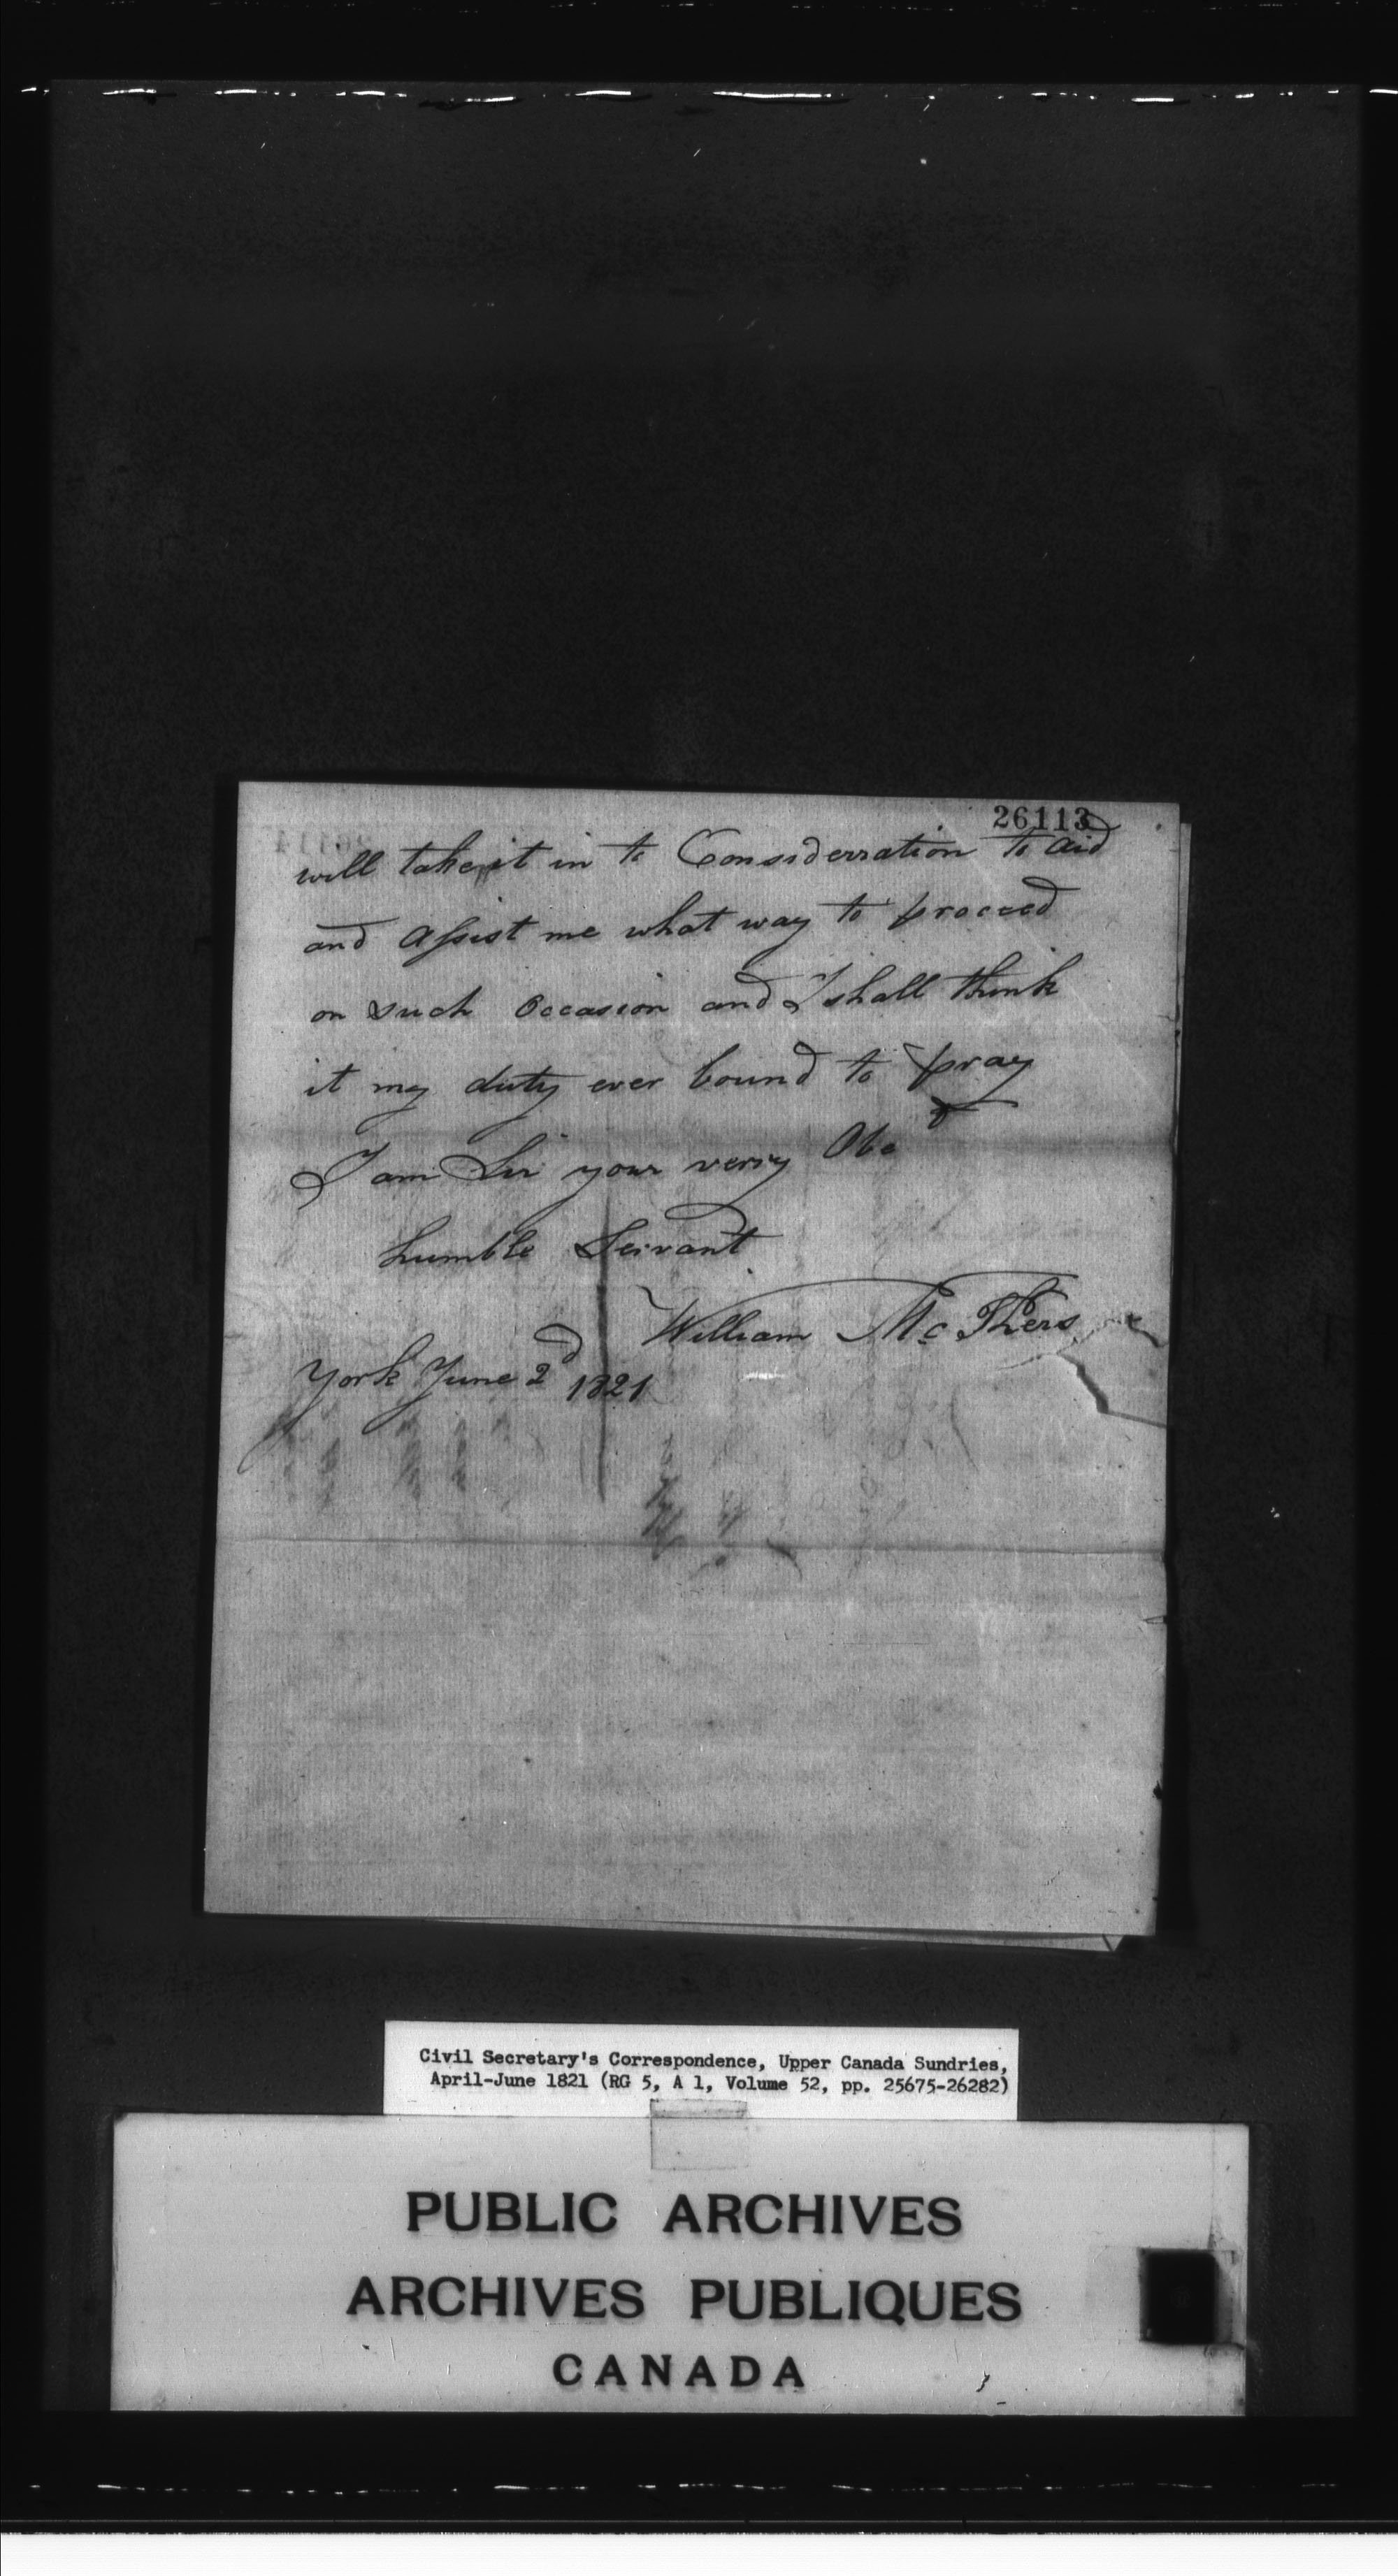 26113
will take it in to Considerration to aid
and assist me what way to proceed
on such occasion and I shall think
it my duty ever bound to pray
I am Sir your verry Obe
humble Servant
William Mc
York June 2d 1821
Civil Secretary's Correspondence, Upper Canada Sundries,
April-June 1821 (RG 5, A 1, Volume 52, pp. 25675-26282)
PUBLIC ARCHIVES
ARCHIVES PUBLIQUES
CANADA